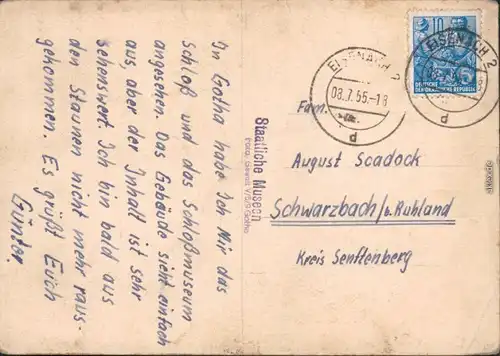 In Gotha habe ich Mir das
Schloß und das Schloßmuseum
angesehen. Das Gebäude sieht einfach
aus, aber der Inhalt ist sehr
sehenswert. Ich bin bald aus
den Staunen nicht mehr raus-
gekommen. Es grüßt Euch
Günter.
Staatliche Museen
EISENACH 2
08.7.55-18
d
EISENACH 2
d
10
5
DEUTSCHE
DEMOKRATISCHE REPUBLIK
Fam.
August Scadock
Schwarzbach/b. Ruhland
Kreis Senftenberg